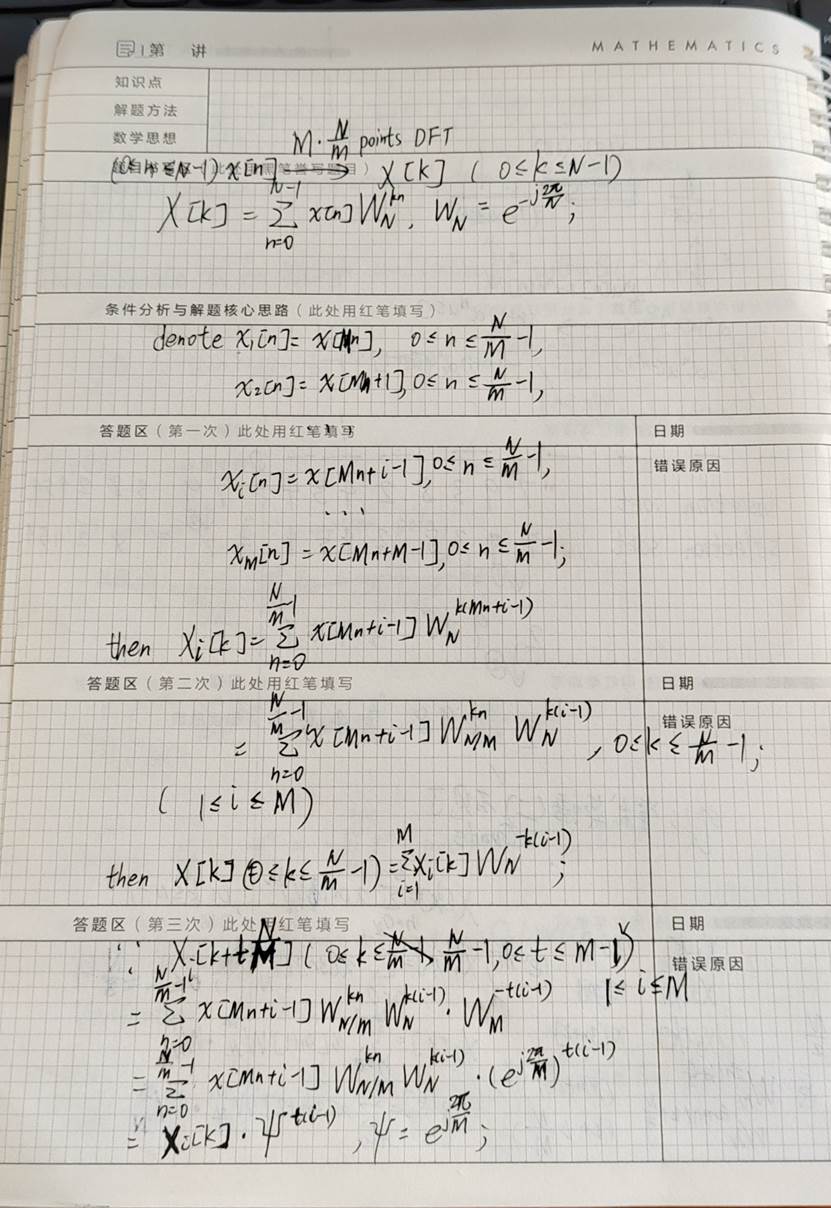 第 讲
MATHEMATICS
知识点
解题方法
数学思想
M·N/m points DFT
x[n] → X[k] (0≤k≤N-1)
X[k] = Σ_{n=0}^{N-1} x[n] W_N^{kn}, W_N = e^{-j2π/N};
条件分析与解题核心思路(此处用红笔填写)
denote x₁[n] = x[Mn], 0≤n≤N/M-1,
x₂[n] = x[Mn+1], 0≤n≤N/m-1,
答题区(第一次)此处用红笔填写 日期
错误原因
x_i[n] = x[Mn+i-1], 0≤n≤N/m-1,
...
x_m[n] = x[Mn+M-1], 0≤n≤N/m-1;
then X_i[k] = Σ_{n=0}^{N/m-1} x[Mn+i-1] W_N^{k(Mn+i-1)}
答题区(第二次)此处用红笔填写 日期
错误原因
= Σ_{n=0}^{N/M-1} x[Mn+i-1] W_{N/M}^{kn} W_N^{k(i-1)}, 0≤k≤N/m-1;
(1≤i≤M)
then X[k] (0≤k≤N/m-1) = Σ_{i=1}^{M} X_i[k] W_N^{-k(i-1)};
答题区(第三次)此处用红笔填写 日期
错误原因
∵ X_i[k+tN/M] (0≤k≤N/m-1, 0≤t≤m-1)
1≤i≤M
= Σ_{n=0}^{N/m-1} x[Mn+i-1] W_{N/m}^{kn} W_N^{k(i-1)} · W_M^{-t(i-1)}
= Σ_{n=0}^{N/m-1} x[Mn+i-1] W_{N/M}^{kn} W_N^{k(i-1)} · (e^{j2π/M})^{t(i-1)}
= X_i[k] · ψ^{t(i-1)}, ψ = e^{j2π/M};